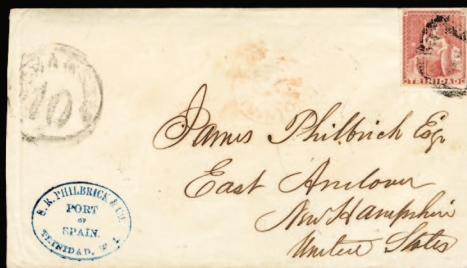 TRINIDAD
10
James Philbrick Esqr
East Andover
New Hampshire
United States
S. R. PHILBRICK & CO.
PORT
OF
SPAIN.
TRINIDAD, W. I.